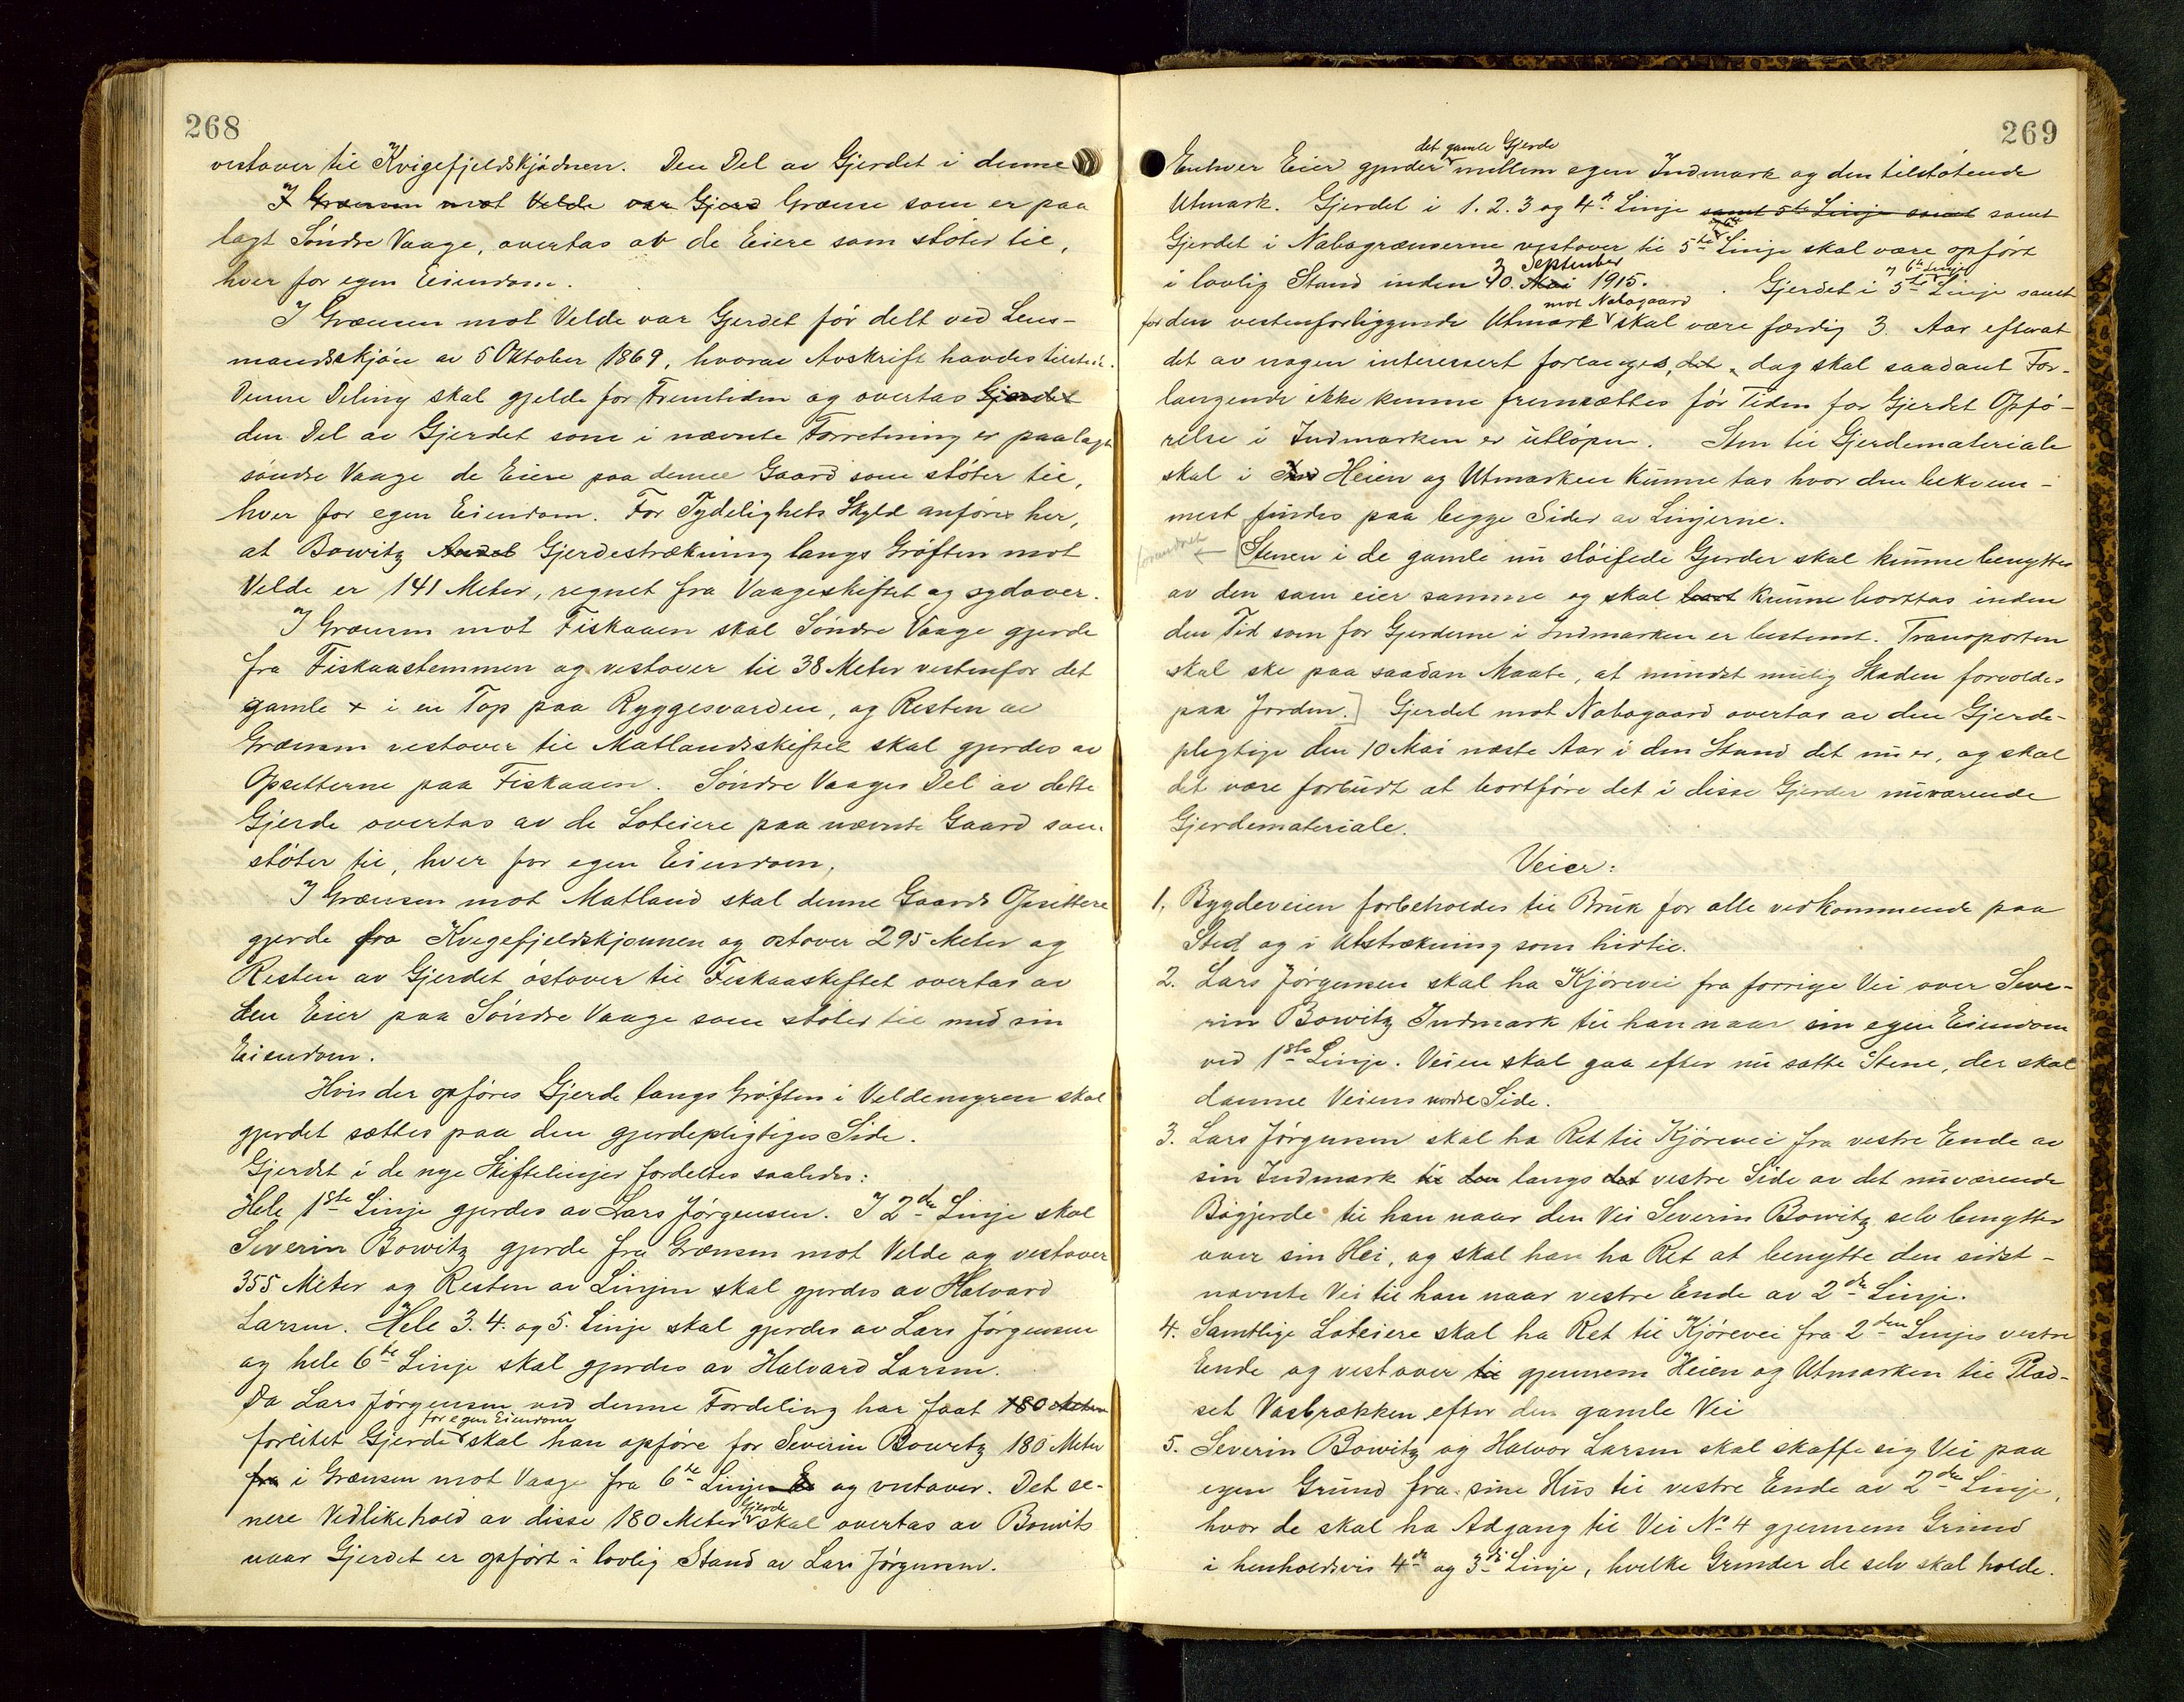 268
vestover til Kvigefjeldskjødnen. Den Del av Gjerdet i denne
I Grænsen mot Velde var Gjerd Grænse som er paa
lagt Søndre Vaage, overtas av de Eiere som støter til,
hver for egen Eiendom.
I Grænsen mot Velde var Gjerdet før delt ved Lens-
mandsskjøn av 5 Oktober 1869, hvorav Avskrift havdes tilstede.
Denne Deling skal gjelde for Fremtiden og overtas Gjerdet
den Del av Gjerdet som i nævnte Forretning er paalagt
søndre Vaage de Eiere paa denne Gaard som støter til,
hver for egen Eiendom. For Tydelighets Skyld anføres her,
at Bowitz Andel Gjerdestrækning langs Grøften mot
Velde er 141 Meter, regnet fra Vaageskiftet og sydover.
I Grænsen mot Fiskaaen skal Søndre Vaage gjerde
fra Fiskaastemmen og vestover til 38 Meter vestenfor det
gamle x i en Top paa Ryggesvarden, og Resten av
Grænsen vestover til Matlandsskiftet skal gjerdes av
Opsitterne paa Fiskaaen. Søndre Vaages Del av dette
Gjerde overtas av de Loteiere paa nævnte Gaard som
støter til, hver for egen Eiendom.
I Grænsen mot Matland skal denne Gaards Opsittere
gjerde fra Kvigefjeldskjønnen og østover 295 Meter og
Resten av Gjerdet østover til Fiskaaskiftet overtas av
den Eier paa Søndre Vaage som støter til med sin
Eiendom.
Hvis der opføres Gjerde langs Grøften i Veldemyren skal
gjerdet sættes paa den gjerdepligtiges Side.
Gjerdet i de nye Skiftelinjer fordeltes saaledes:
Hele 1ste Linje gjerdes av Lars Jørgensen. I 2den Linje skal
Severin Bowitz gjerde fra Grænsen mot Velde og vestover
355 Meter og Resten av Linjen skal gjerdes av Halvard
Larsen. Hele 3. 4. og 5. Linje skal gjerdes av Lars Jørgensen
og hele 6te Linje skal gjerdes av Halvard Larsen.
Da Lars Jørgensen ved denne Fordeling har faat 180 Meter
for egen Eiendom
forlitet Gjerde skal han opføre for Severin Bowitz 180 Meter
fra i Grænsen mot Vaage fra 6te Linje og vestover. Det se-
Gjerde
nere Vedlikehold av disse 180 Meter skal overtas av Bowitz
naar Gjerdet er opført i lovlig Stand av Lars Jørgensen.
269
det gamle Gjerde
Enhver Eier gjerder mellem egen Indmark og den tilstøtende
Utmark. Gjerdet i 1. 2. 3 og 4de Linje samt 5te Linje samt samt
Gjerdet i Nabogrænserne vestover til 5te Linje skal være opført
3 September
i lovlig Stand inden 10. Mai 1915. Gjerdet i 5te Linje samt
og 6te Linje
mot Nabogaard
for den vestenforliggende Utmark skal være færdig 3. Aar efterat
det av nogen interessert forlanges, det dog skal saadant For-
langende ikke kunne fremsættes før Tiden for Gjerdet Opfø-
relse i Indmarken er utløpen. Sten til Gjerdemateriale
skal i Heien og Utmarken kunne tas hvor den bekvem-
mest findes paa begge Sider av Linjerne.
forandret ← [Stenen i de gamle nu sløifede Gjerder skal kunne benyttes
av den som eier samme og skal bort kunne borttas inden
den Tid som for Gjerderne i Indmarken er bestemt. Transporten
skal ske paa saadan Maate, at mindst mulig Skaden forvoldes
paa Jorden.] Gjerdet mot Nabogaard overtas av den Gjerde-
pligtige den 10 Mai næste Aar i den Stand det nu er, og skal
det være forbudt at bortføre det i disse Gjerder nuværende
Gjerdemateriale.
Veier:
1, Bygdeveien forbeholdes til Bruk for alle vedkommende paa
Sted og i Utstrækning som hidtil.
2. Lars Jørgensen skal ha Kjørevei fra forrige Vei over Seve-
rin Bowitz Indmark til han naar sin egen Eiendom
ved 1ste Linje. Veien skal gaa efter nu satte Stene, der skal
danne Veiens nordre Side.
3. Lars Jørgensen skal ha Ret til Kjørevei fra vestre Ende av
sin Indmark til den langs det vestre Side av det nuværende
Bøgjerde til han naar den Vei Severin Bowitz selv benytter
over sin Hei, og skal han ha Ret at benytte den sidst-
nævnte Vei til han naar vestre Ende av 2den Linje.
4. Samtlige Loteiere skal ha Ret til Kjørevei fra 2den Linjes vestre
Ende og vestover til gjennem Heien og Utmarken til Plad-
set Vasbrækken efter den gamle Vei
5. Severin Bowitz og Halvor Larsen skal skaffe sig Vei paa
egen Grund fra sine Hus til vestre Ende av 2den Linje,
hvor de skal ha Adgang til Vei No 4 gjennem Grind
i henholdsvis 4de og 3dje Linje, hvilke Grinder de selv skal holde.